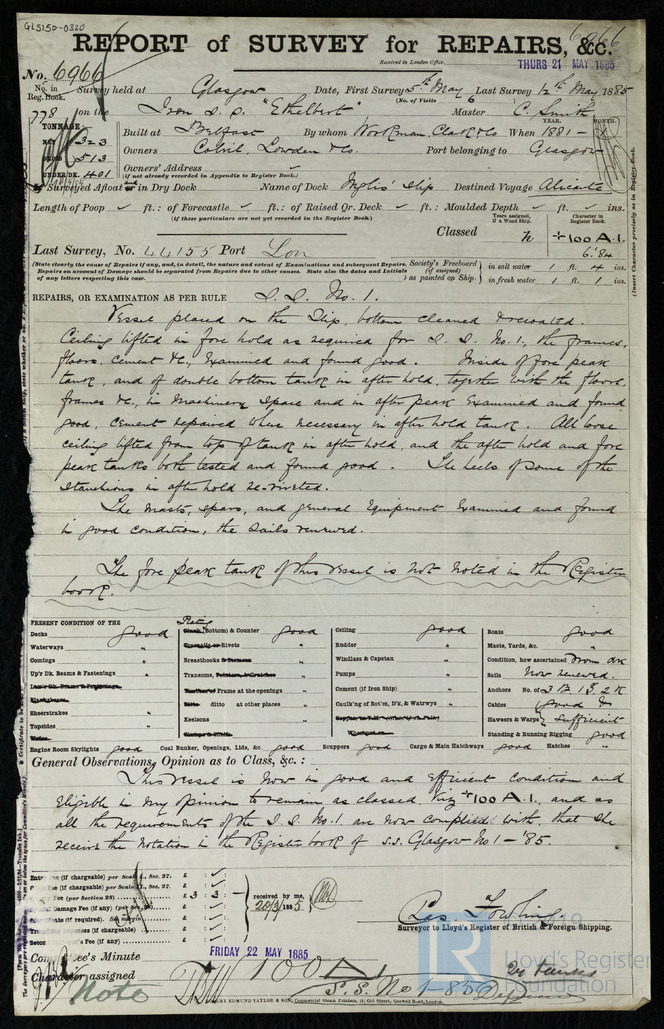 GLS150-0320
REPORT of SURVEY for REPAIRS, &c. 6966
Received in London Office THURS 21 MAY 1885
No. 6966
No. in Reg. Book. Survey held at Glasgow Date, First Survey 5th May Last Survey 12th May 1885
(No. of Visits 6
778 on the Iron S.S. "Ethelbert" Master C. Smith
TONNAGE: YEAR. MONTH.
NET 323 Built at Belfast By whom Workman, Clark & Co When 1881 -
GROSS 513 Owners Colvil, Lowden & Co. Port belonging to Glasgow
UNDER DK. 401 Owners' Address
(if not already recorded in Appendix to Register Book.)
If Surveyed Afloat or in Dry Dock Name of Dock Inglis' Slip Destined Voyage Alicante
Length of Poop ft.: of Forecastle ft.: of Raised Qr. Deck ft.: Moulded Depth ft. ins.
(if these particulars are not yet recorded in the Register Book.)
Years assigned, if a Wood Ship. Character in Register Book.
Classed +100 A.1.
6.84
Last Survey, No. 44155 Port Lon
(State clearly the cause of Repairs if any, and, in detail, the nature and extent of Examinations and subsequent Repairs.
Repairs on account of Damage should be separated from Repairs due to other causes. State also the dates and Initials
of any letters respecting this case.
Society's Freeboard (if assigned) as painted on Ship: in salt water 1 ft. 4 ins.
in fresh water 1 ft. 1 ins.
(Insert Character precisely as in Register Book.
REPAIRS, OR EXAMINATION AS PER RULE S.S. No. 1.
Vessel placed on the Slip, bottom cleaned & recoated.
Ceiling lifted in fore hold as required for S.S. No. 1, the frames,
floors, cement &c, Examined and found good. Inside of fore peak
tank, and of double bottom tank in after hold, together with the floors,
frames &c, in Machinery Space and in after peak Examined and found
good, cement repaired where necessary in after hold tank. All loose
ceiling lifted from top of tank in after hold, and the after hold and fore
peak tanks both tested and found good. The heels of some of the
stanchions in after hold re-riveted.
The Masts, spars, and general Equipment Examined and found
in good condition, the Sails renewed.
The fore peak tank of this vessel is not noted in the Register
book.
PRESENT CONDITION OF THE
Decks good
Waterways "
Comings "
Up'r Dk. Beams & Fastenings "
Sheerstrakes "
Topsides
Wales
Engine Room Skylights good
Plating
(Bottom) & Counter good
Rivets "
Breasthooks "
Transoms "
Frame at the openings "
ditto at other places "
Keelsons "
Coal Bunker, Openings, Lids, &c. good
Ceiling good
Rudder "
Windlass & Capstan "
Pumps "
Cement (if Iron Ship) "
Caulk'ng of Bot'm, D'k, & Watrwys "
Scuppers good Cargo & Main Hatchways good Hatches "
Boats good
Masts, Yards, &c. "
Condition, how ascertained from dk
Sails Now renewed.
Anchors No. of 3 B. 1 S. 2 K
Cables good &
Hawsers & Warps sufficient
Standing & Running Rigging good
General Observations, Opinion as to Class, &c.:
This Vessel is now in good and efficient condition and
eligible in my opinion to remain as classed viz +100 A.1., and as
all the requirements of the S.S. No. 1. are now complied with, that she
receive the notation in the Register book of S.S. Glasgow No 1 - '85.
Fee (if chargeable) per Scale I., Sec. 27. £
Fee (if chargeable) per Scale, Sec. 27. £
Fee (per Section 28) £ 3 3
Damage Fee (if any) (per Sec. £
(if required). £
Expenses (if chargeable) £
Fee (if any) £
received by me, 20/5/1885
Surveyor to Lloyd's Register of British & Foreign Shipping.
Committee's Minute FRIDAY 22 MAY 1885
Character assigned 100 A1
S.S. No 1-85
Note
Lloyd's Register
Foundation